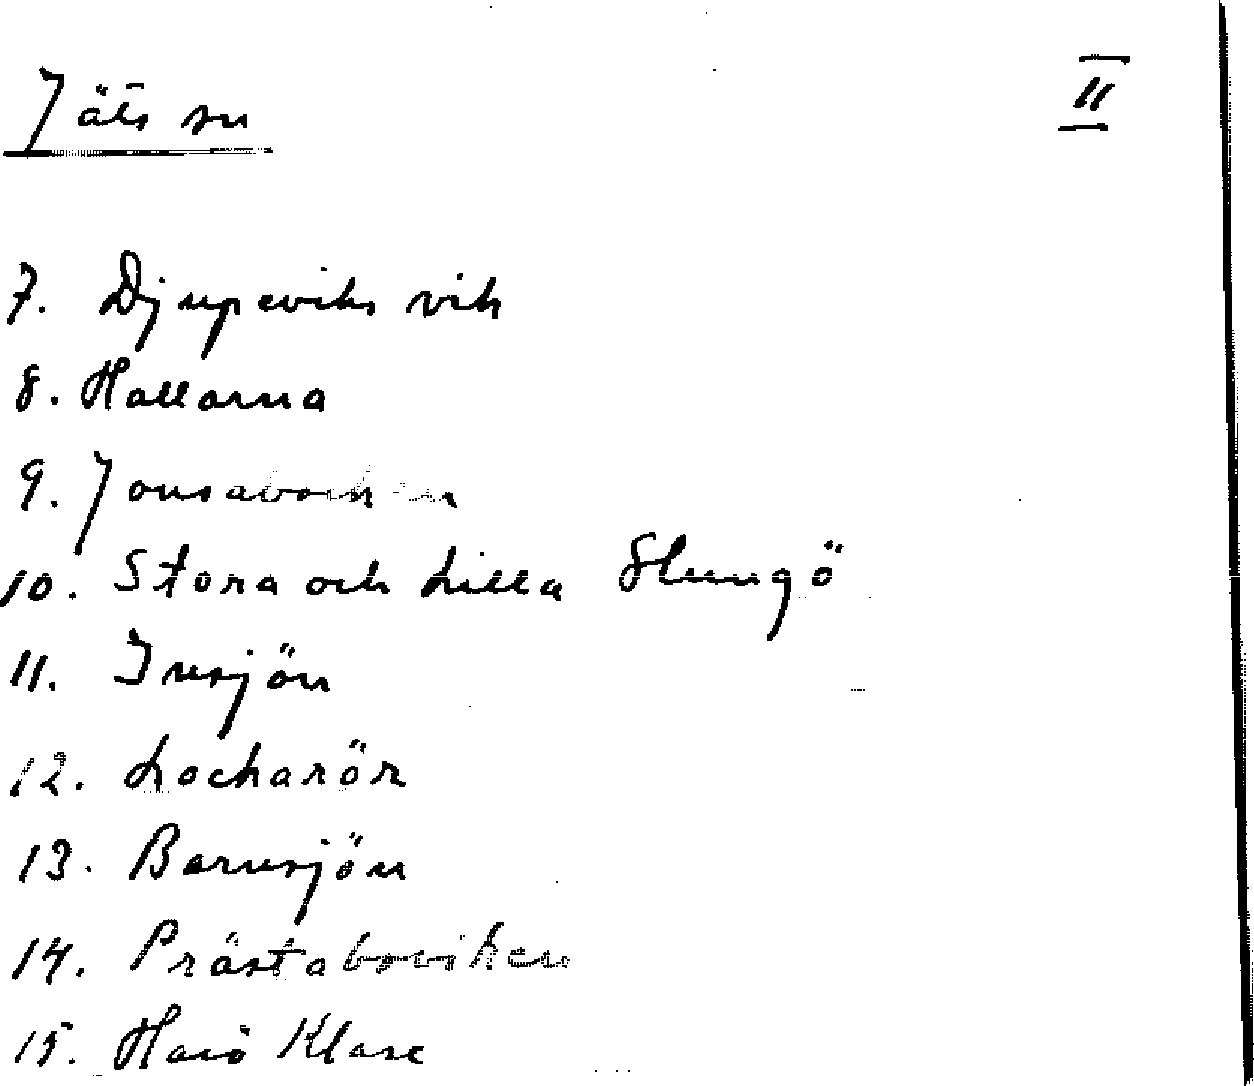 Jäts sn
II
7. Djupeviks vik
8. Hallarna
9. Jonsaboviken
10. Stora och Lilla Slungö
11. Insjön
12. Lockarör
13. Barnsjön
14. Prästaboviken
15. Haiö Klase